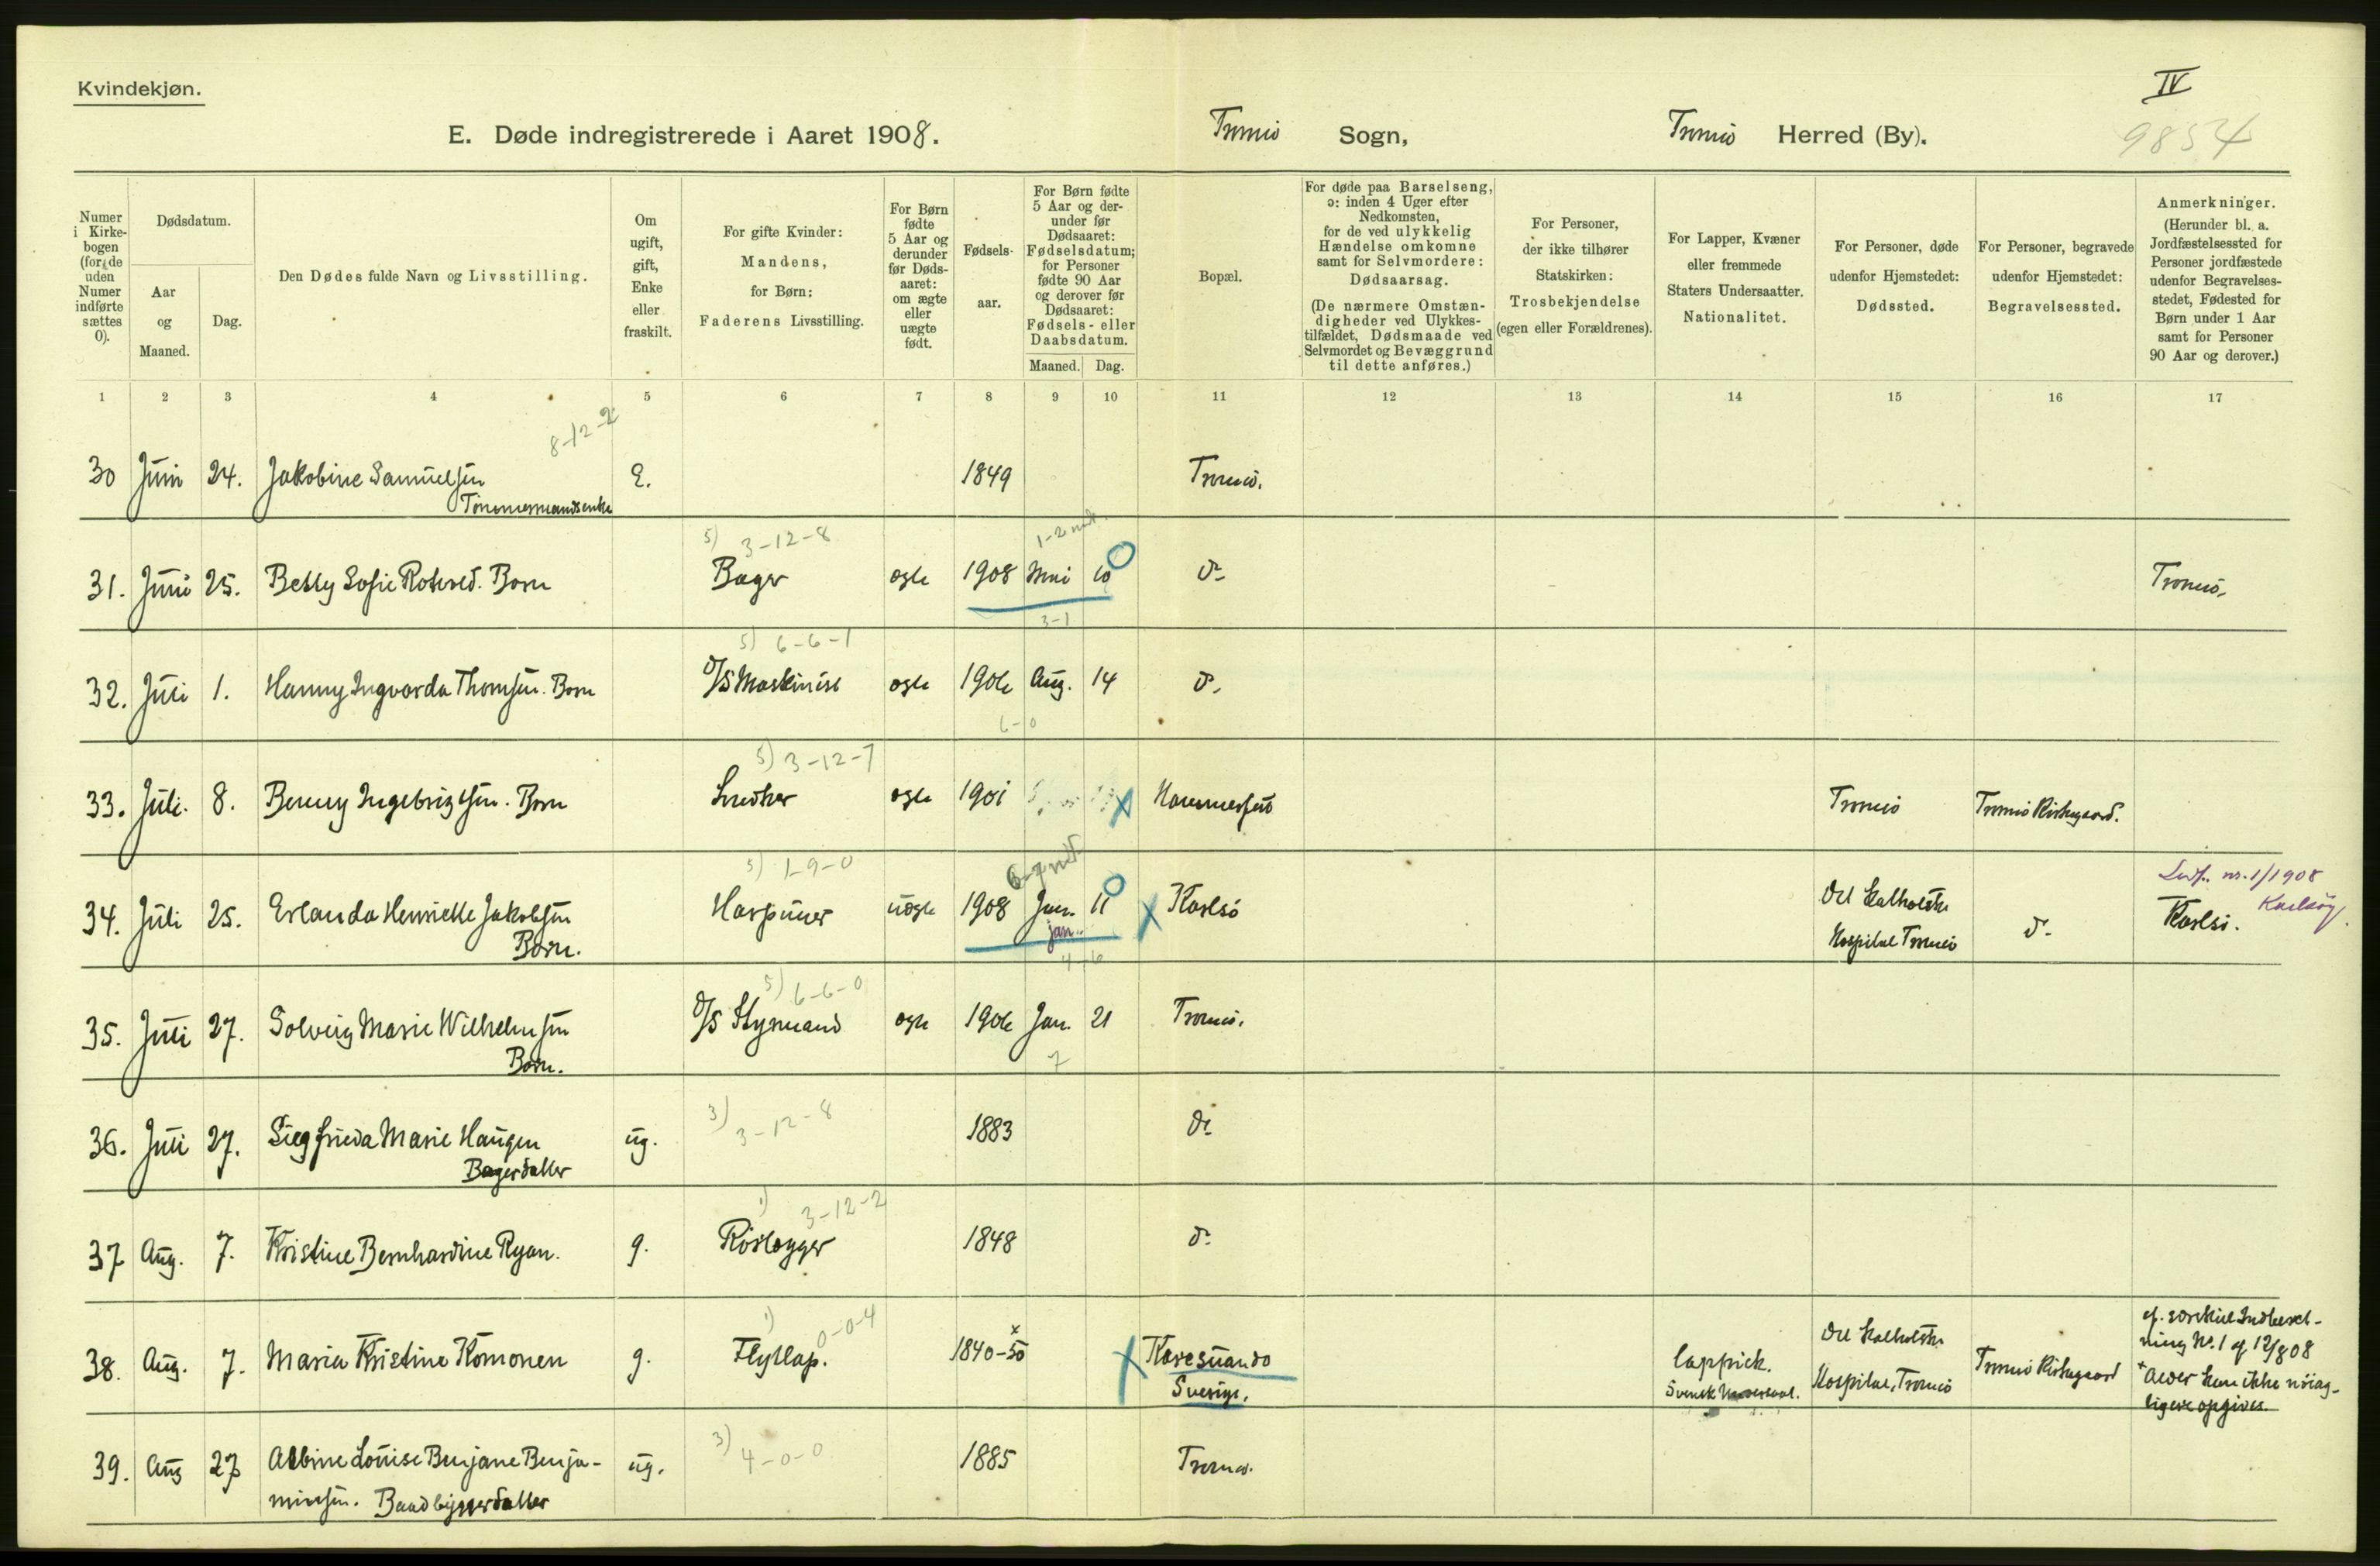 Kvindekjøn.
IV
E. Døde indregistrerede i Aaret 1908. Tromsø Sogn, Tromsø Herred (By).
9854
Numer i Kirkebogen (for de uden Numer indførte sættes 0).
Dødsdatum.
Aar og Maaned.
Dag.
Den Dødes fulde Navn og Livsstilling.
Om ugift, gift, Enke eller fraskilt.
For gifte Kvinder: Mandens, for Børn: Faderens Livsstilling.
For Børn fødte 5 Aar og derunder før Dødsaaret: om ægte eller uægte født.
Fødselsaar.
For Børn fødte 5 Aar og derunder før Dødsaaret: Fødselsdatum; for Personer fødte 90 Aar og derover før Dødsaaret: Fødsels- eller Daabsdatum.
Maaned. Dag.
Bopæl.
For døde paa Barselseng, ɔ: inden 4 Uger efter Nedkomsten, for de ved ulykkelig Hændelse omkomne samt for Selvmordere: Dødsaarsag. (De nærmere Omstændigheder ved Ulykkestilfældet, Dødsmaade ved Selvmordet og Bevæggrund til dette anføres.)
For Personer, der ikke tilhører Statskirken: Trosbekjendelse (egen eller Forældrenes).
For Lapper, Kvæner eller fremmede Staters Undersaatter. Nationalitet.
For Personer, døde udenfor Hjemstedet: Dødssted.
For Personer, begravede udenfor Hjemstedet: Begravelsessted.
Anmerkninger. (Herunder bl. a. Jordfæstelsessted for Personer jordfæstede udenfor Begravelsesstedet, Fødested for Børn under 1 Aar samt for Personer 90 Aar og derover.)
1 2 3 4 5 6 7 8 9 10 11 12 13 14 15 16 17
8-12-2
30 Juni 24. Jakobine Samuelsen E. 1849 Tromsø.
Tømmermandsenke
5) 3-12-8 1-2 md.
31. Juni 25. Betty Sofie Rotvold. Barn Bager ægte 1908 Mai 10 do Tromsø.
3-1
5) 6-6-1
32. Juli 1. Hanny Ingvarda Thomsen. Barn D/S Maskinist ægte 1906 Aug. 14 do
6-0
5) 3-12-7
33. Juli. 8. Benny Ingebrigtsen. Barn Snedker ægte 1901 Hammerfest Tromsø Tromsø Kirkegaard.
5) 1-9-0 6-7 md.
Ludf. nr. 1/1908
Karlsøy.
34. Juli 25. Erlanda Henriette Jakobsen Harpuner uægte 1908 Jan. 11 Karlsø Det katholske do Karlsø.
Barn. jan. Hospital Tromsø
5) 6-6-0
35. Juli 27. Solveig Marie Wilhelmsen D/S Styrmand ægte 1906 Jan. 21 Tromsø.
Barn. 7
3) 3-12-8
36. Juli 27. Siegfrieda Marie Haugen ug. 1883 do
Bagerdatter
1) 3-12-2
37 Aug. 7. Kristine Bernhardine Ryan. g. Rørlægger 1848 do
1) 0-0-4
38. Aug. 7. Maria Kristine Komonen g. Flytlap. 1840-50 x Karesuando lappisk. Det katholske Tromsø Kirkegaard
Sverige. Svensk Undersaat. Hospital, Tromsø
cf. særskilt Indberet-
ning No. 1 af 12/8 08
+ Alder kan ikke nöiag-
tigere opgives.
3) 4-0-0
39. Aug 27 Albine Louise Benjane Benja- ug. 1885 Tromsø.
minsen. Baadbyggerdatter